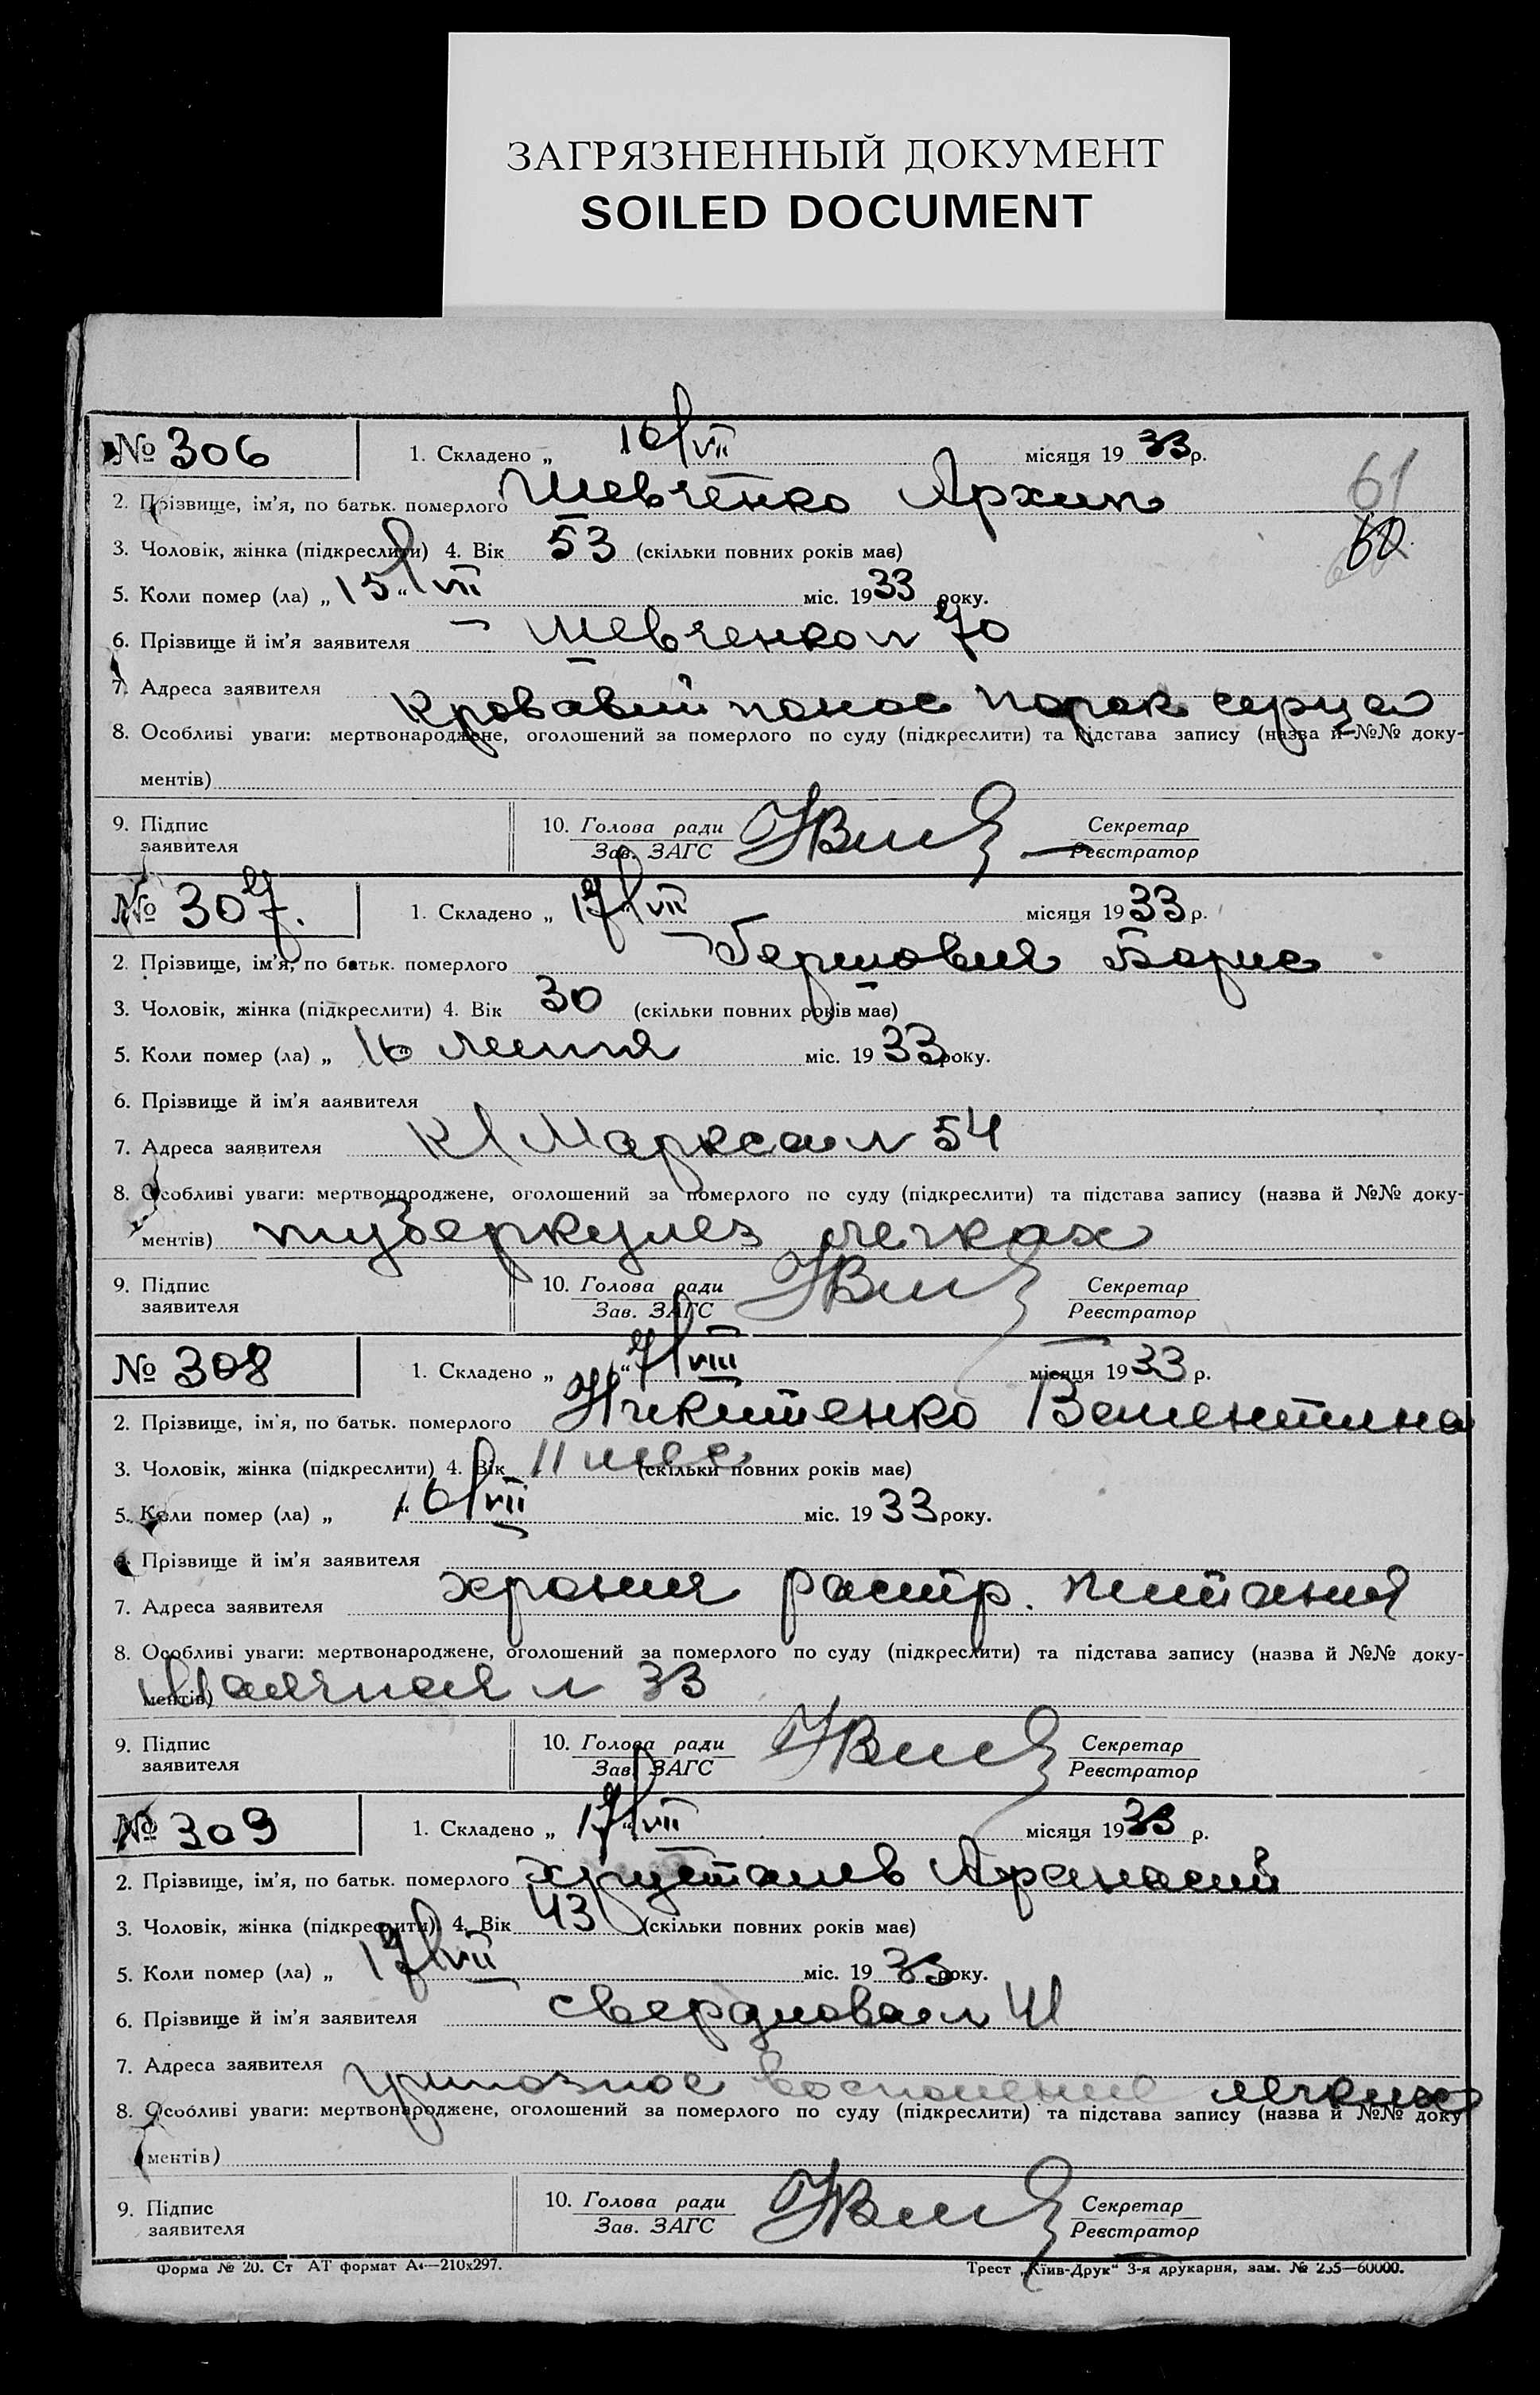 ЗАГРЯЗНЕННЫЙ ДОКУМЕНТ
SOILED DOCUMENT
№ 306 1. Складено „ 16/VII місяця 1933 р.
61
2. Прізвище, ім'я, по батьк. померлого Шевченко Архип
60
3. Чоловік, жінка (підкреслити) 4. Вік 53 (скільки повних років має)
5. Коли помер (ла) „ 15/VII “ міс. 1933 року.
6. Прізвище й ім'я заявителя Шевченко N 70
7. Адреса заявителя Кровавий понос порок серца
8. Особливі уваги: мертвонароджене, оголошений за померлого по суду (підкреслити) та підстава запису (назва й №№ доку-
ментів)
9. Підпис заявителя 10. Голова ради Секретар
Зав. ЗАГС Реєстратор
№ 307. 1. Складено „ 17/VII місяця 1933 р.
2. Прізвище, ім'я, по батьк. померлого Гершович Борис
3. Чоловік, жінка (підкреслити) 4. Вік 30 (скільки повних років має)
5. Коли помер (ла) „ 16 липня міс. 1933 року.
6. Прізвище й ім'я ааявителя
7. Адреса заявителя К/Маркса N 54
8. Особливі уваги: мертвонароджене, оголошений за померлого по суду (підкреслити) та підстава запису (назва й №№ доку-
ментів) туберкулез легках
9. Підпис заявителя 10. Голова ради Секретар
Зав. ЗАГС Реєстратор
№ 308 1. Складено „ “ 7/VIII місяця 1933 р.
2. Прізвище, ім'я, по батьк. померлого Никитенко Валентина
3. Чоловік, жінка (підкреслити) 4. Вік 11 мес (скільки повних років має)
5. Коли помер (ла) „ 16/VII “ міс. 1933 року.
6. Прізвище й ім'я заявителя
7. Адреса заявителя хронич растр. питания
8. Особливі уваги: мертвонароджене, оголошений за померлого по суду (підкреслити) та підстава запису (назва й №№ доку-
ментів) N 33
9. Підпис заявителя 10. Голова ради Секретар
Зав. ЗАГС Реєстратор
№ 309 1. Складено „ 17/VII місяця 1933 р.
2. Прізвище, ім'я, по батьк. померлого Хрусталев Афанасий
3. Чоловік, жінка (підкреслити) 4. Вік 43 (скільки повних років має)
5. Коли помер (ла) „ 17/VII міс. 1933 року.
6. Прізвище й ім'я заявителя Свердлова N 41
7. Адреса заявителя грипозное воспаление легких
8. Особливі уваги: мертвонароджене, оголошений за померлого по суду (підкреслити) та підстава запису (назва й №№ доку-
ментів)
9. Підпис заявителя 10. Голова ради Секретар
Зав. ЗАГС Реєстратор
Форма № 20. Ст АТ формат А4—210х297. Трест „Київ-Друк“ 3-я друкарня, зам. № 255—60000.